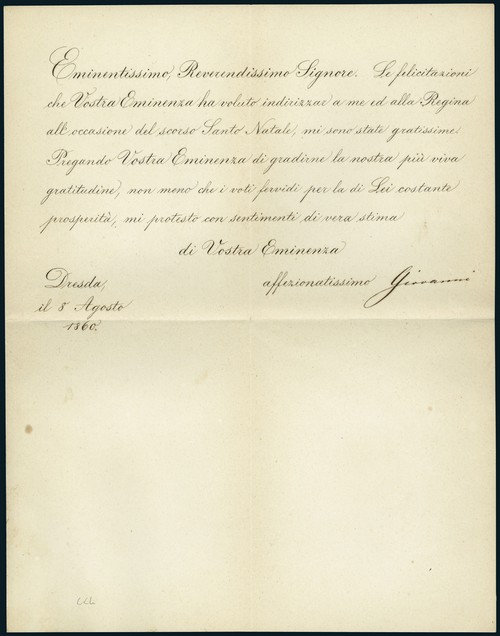 Eminentissimo, Reverendissimo Signore. Le felicitazioni
che Vostra Eminenza ha voluto indirizzar a me ed alla Regina
all'occasione del scorso Santo Natale, mi sono state gratissime.
Pregando Vostra Eminenza di gradirne la nostra più viva
gratitudine, non meno che i voti fervidi per la di Lei costante
prosperità, mi protesto con sentimenti di vera stima
di Vostra Eminenza
affezionatissimo Giovanni
Dresda,
il 8 Agosto
1860.